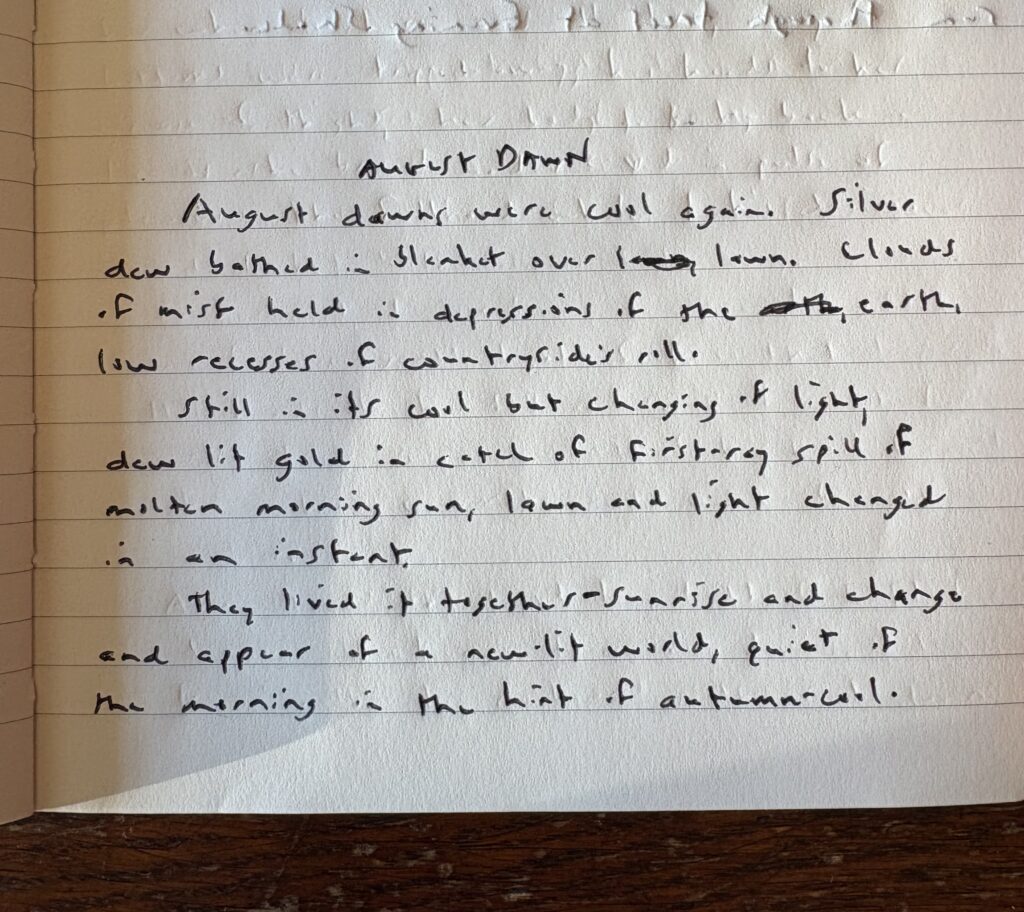 AUGUST DAWN
August dawns were cool again. Silver
dew bathed in blanket over lawn. Clouds
of mist held in depressions of the earth,
low recesses of countryside's roll.
Still in its cool but changing of light,
dew lit gold in catch of first-ray spill of
molten morning sun, lawn and light changed
in an instant.
They lived it together-sunrise and change
and appear of a new-lit world, quiet of
the morning in the hint of autumn-cool.